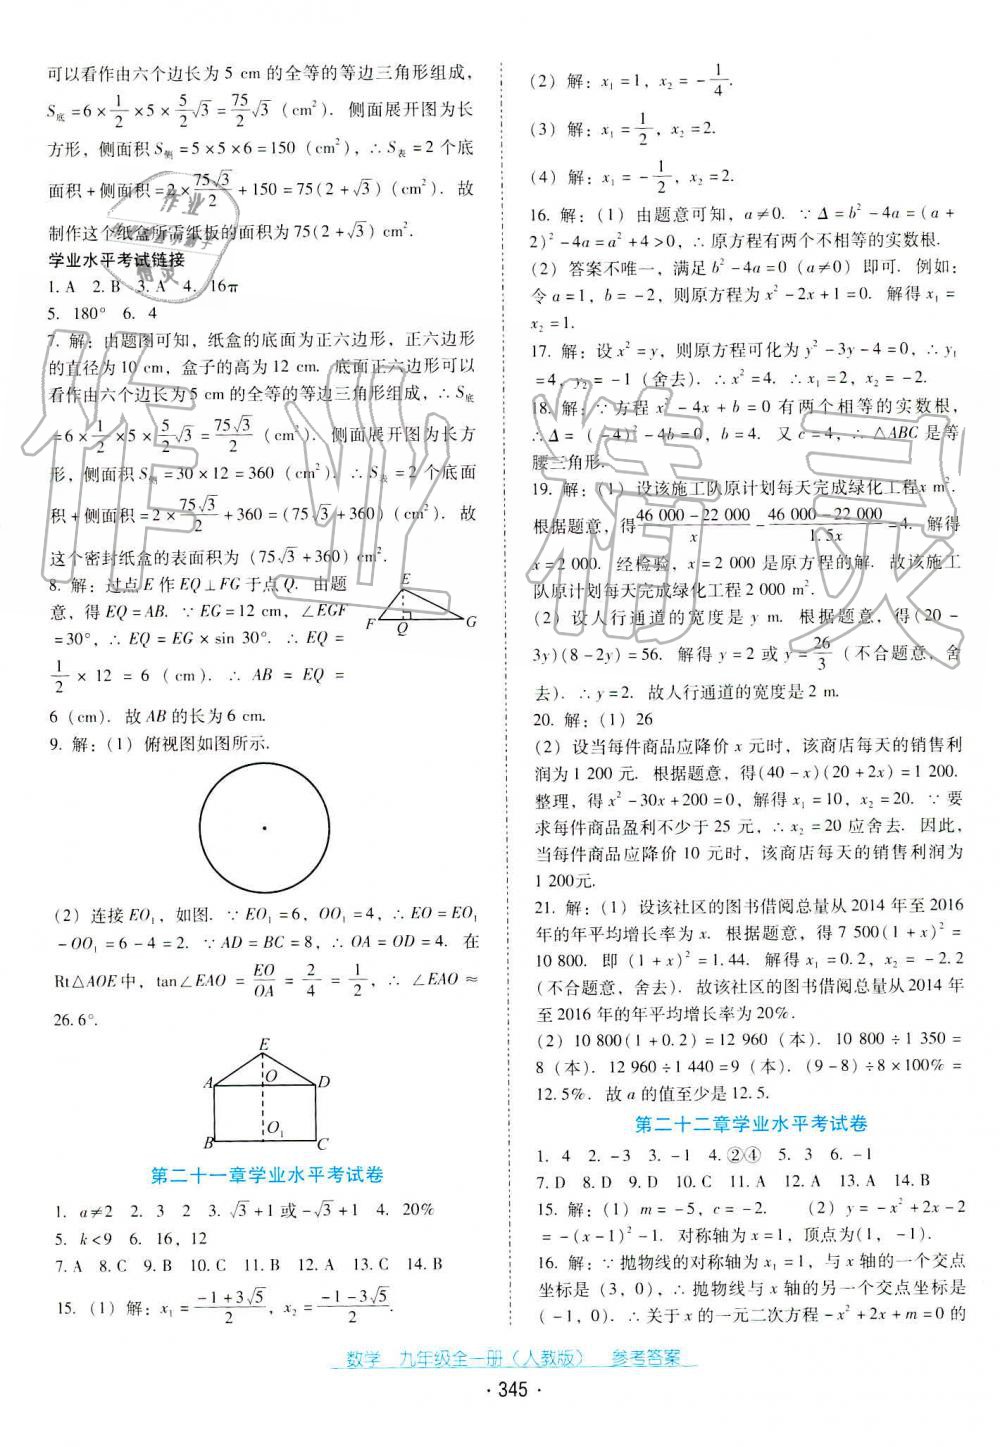 可以看作由六个边长为 5 cm 的全等的等边三角形组成，
S底=6×1/2×5×5/2√3=75/2√3（cm²）. 侧面展开图为长
方形，侧面积S侧=5×5×6=150（cm²），∴S表=2个底
面积+侧面积=2×75√3/2+150=75(2+√3)（cm²）. 故
制作这个纸盒所需纸板的面积为75(2+√3)cm².
学业水平考试链接
1. A  2. B  3. A  4. 16π
5. 180°  6. 4
7. 解：由题图可知，纸盒的底面为正六边形，正六边形
的直径为10 cm，盒子的高为12 cm. 底面正六边形可以
看作由六个边长为5 cm的全等的等边三角形组成，∴S底
=6×1/2×5×5/2√3=75√3/2（cm²）. 侧面展开图为长方
形，侧面积S侧=30×12=360（cm²）∴S表=2个底面
积+侧面积=2×75√3/2+360=(75√3+360)（cm²）. 故
这个密封纸盒的表面积为（75√3+360）cm².
8. 解：过点E作EQ⊥FG于点Q. 由题
意，得EQ=AB. ∵EG=12 cm，∠EGF
=30°，∴EQ=EG×sin 30°. ∴EQ=
1/2×12=6（cm）. ∴AB=EQ=
6（cm）. 故AB的长为6 cm.
E
F
Q
G
9. 解：（1）俯视图如图所示.
（2）连接EO₁，如图. ∵EO₁=6，OO₁=4，∴EO=EO₁
-OO₁=6-4=2. ∵AD=BC=8，∴OA=OD=4. 在
Rt△AOE中，tan∠EAO=EO/OA=2/4=1/2，∴∠EAO≈
26.6°.
E
A
O
D
B
O₁
C
第二十一章学业水平考试卷
1. a≠2  2. 3  2  3. √3+1或-√3+1  4. 20%
5. k<9  6. 16，12
7. A  8. C  9. B  10. C  11. A  12. A  13. C  14. B
15.（1）解：x₁=(-1+3√5)/2，x₂=(-1-3√5)/2.
（2）解：x₁=1，x₂=-1/4.
（3）解：x₁=1/2，x₂=2.
（4）解：x₁=-1/2，x₂=2.
16. 解：（1）由题意可知，a≠0. ∵Δ=b²-4a=(a+
2)²-4a=a²+4>0，∴原方程有两个不相等的实数根.
（2）答案不唯一，满足b²-4a=0（a≠0）即可. 例如：
令a=1，b=-2，则原方程为x²-2x+1=0. 解得x₁=
x₂=1.
17. 解：设x²=y，则原方程可化为y²-3y-4=0，∴y₁
=4，y₂=-1（舍去）. ∴x²=4. ∴x₁=2，x₂=-2.
18. 解：∵方程x²-4x+b=0有两个相等的实数根，
∴Δ=(-4)²-4b=0，b=4. 又c=4，∴△ABC是等
腰三角形.
19. 解：（1）设该施工队原计划每天完成绿化工程x m².
根据题意，得(46 000-22 000)/x-(46 000-22 000)/1.5x=4. 解得
x=2 000. 经检验，x=2 000是原方程的解. 故该施工
队原计划每天完成绿化工程2 000 m².
（2）设人行通道的宽度是y m. 根据题意，得(20-
3y)(8-2y)=56. 解得y=2或y=26/3（不合题意，舍
去）. ∴y=2. 故人行通道的宽度是2 m.
20. 解：（1）26
（2）设当每件商品应降价x元时，该商店每天的销售利
润为1 200元. 根据题意，得(40-x)(20+2x)=1 200.
整理，得x²-30x+200=0，解得x₁=10，x₂=20. ∵要
求每件商品盈利不少于25元，∴x₂=20应舍去. 因此，
当每件商品应降价10元时，该商店每天的销售利润为
1 200元.
21. 解：（1）设该社区的图书借阅总量从2014年至2016
年的年平均增长率为x. 根据题意，得7 500(1+x)²=
10 800. 即(1+x)²=1.44. 解得x₁=0.2，x₂=-2.2
（不合题意，舍去）. 故该社区的图书借阅总量从2014年
至2016年的年平均增长率为20%.
（2）10 800(1+0.2)=12 960（本）. 10 800÷1 350=
8（本）. 12 960÷1 440=9（本）. (9-8)÷8×100%=
12.5%. 故a的值至少是12.5.
第二十二章学业水平考试卷
1. 4  2. -3  3. (-1  4. ②④  5. 3  6. -1
7. D  8. D  9. D  10. C  11. A  12. A  13. A  14. B
15. 解：（1）m=-5，c=-2.  （2）y=-x²+2x-2
=-(x-1)²-1. 对称轴为x=1，顶点为(1，-1).
16. 解：∵抛物线的对称轴为x=1，与x轴的一个交点
坐标是（3，0），∴抛物线与x轴的另一个交点坐标是
(-1，0). ∴关于x的一元二次方程-x²+2x+m=0的
数学 九年级全一册（人教版） 参考答案
·345·
作业精灵